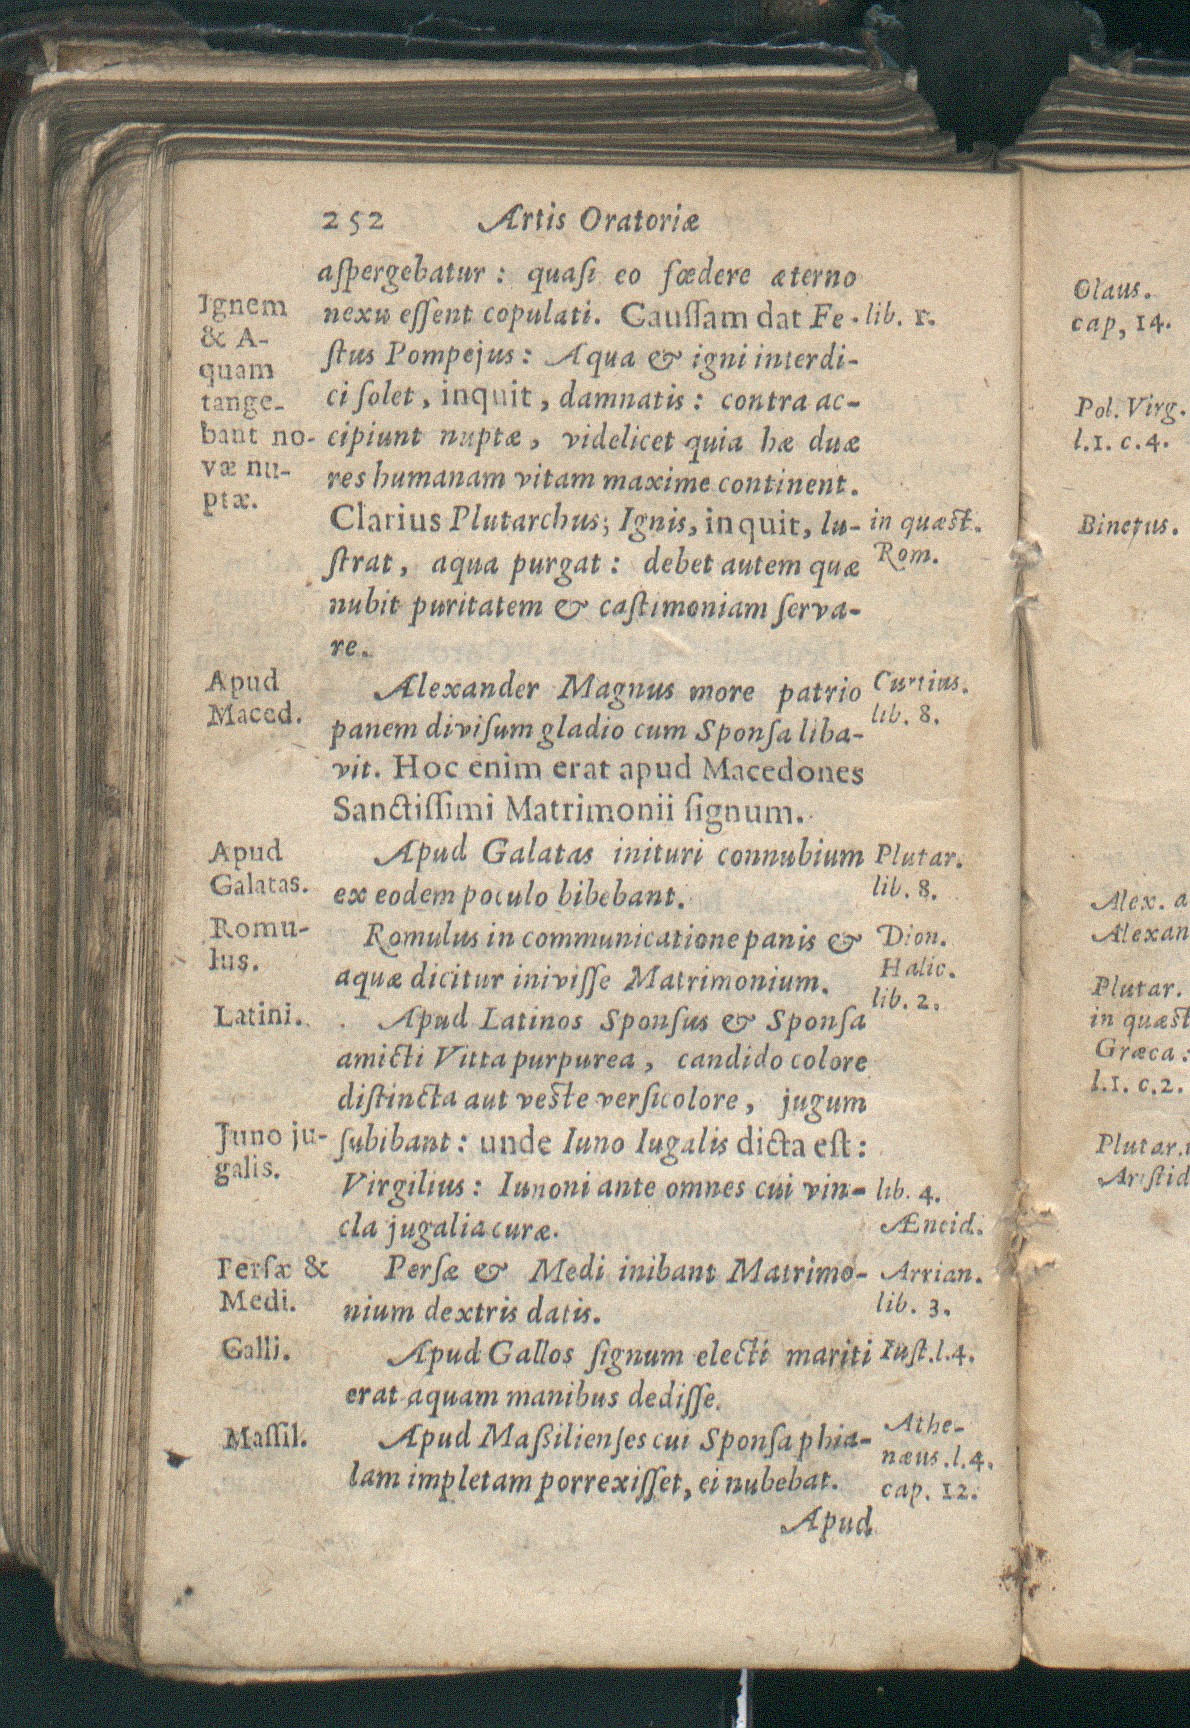 252 Artis Oratoriæ
aſpergebatur : quaſi eo fœdere æterno
nexu eſſent copulati. Cauſſam dat Fe-
ſtus Pompejus : Aqua & igni interdi-
ci ſolet , inquit , damnatis : contra ac-
cipiunt nuptæ , videlicet quia hæ duæ
res humanam vitam maxime continent.
Clarius Plutarchus; Ignis, inquit, lu-
ſtrat , aqua purgat : debet autem quæ
nubit puritatem & caſtimoniam ſerva-
re.
Alexander Magnus more patrio
panem diviſum gladio cum Sponſa liba-
vit. Hoc enim erat apud Macedones
Sanctiſſimi Matrimonii ſignum.
Apud Galatas inituri connubium
ex eodem poculo bibebant.
Romulus in communicatione panis &
aquæ dicitur iniviſſe Matrimonium.
Apud Latinos Sponſus & Sponſa
amicti Vitta purpurea , candido colore
diſtincta aut veſte verſicolore , jugum
ſubibant : unde Iuno Iugalis dicta eſt :
Virgilius : Iunoni ante omnes cui vin-
cla jugalia curæ.
Perſæ & Medi inibant Matrimo-
nium dextris datis.
Apud Gallos ſignum electi mariti
erat aquam manibus dediſſe.
Apud Maſſilienſes cui Sponſa phia-
lam impletam porrexiſſet, ei nubebat.
Apud
Ignem
& A-
quam
tange-
bant no-
væ nu-
ptæ.
Apud
Maced.
Apud
Galatas.
Romu-
lus.
Latini.
Juno ju-
galis.
Perſæ &
Medi.
Galli.
Maſſil.
lib. 1.
in quæſt.
Rom.
Curtius.
lib. 8.
Plutar.
lib. 8.
Dion.
Halic.
lib. 2.
lib. 4.
Æneid.
Arrian.
lib. 3.
Iuſt.l.4.
Athe-
næus.l.4.
cap. 12.
Olaus.
cap, 14.
Pol. Virg.
l.1. c.4.
Binetus.
Alex. a
Alexan
Plutar.
in quæſt
Græca :
l.1. c.2.
Plutar.
Ariſtid